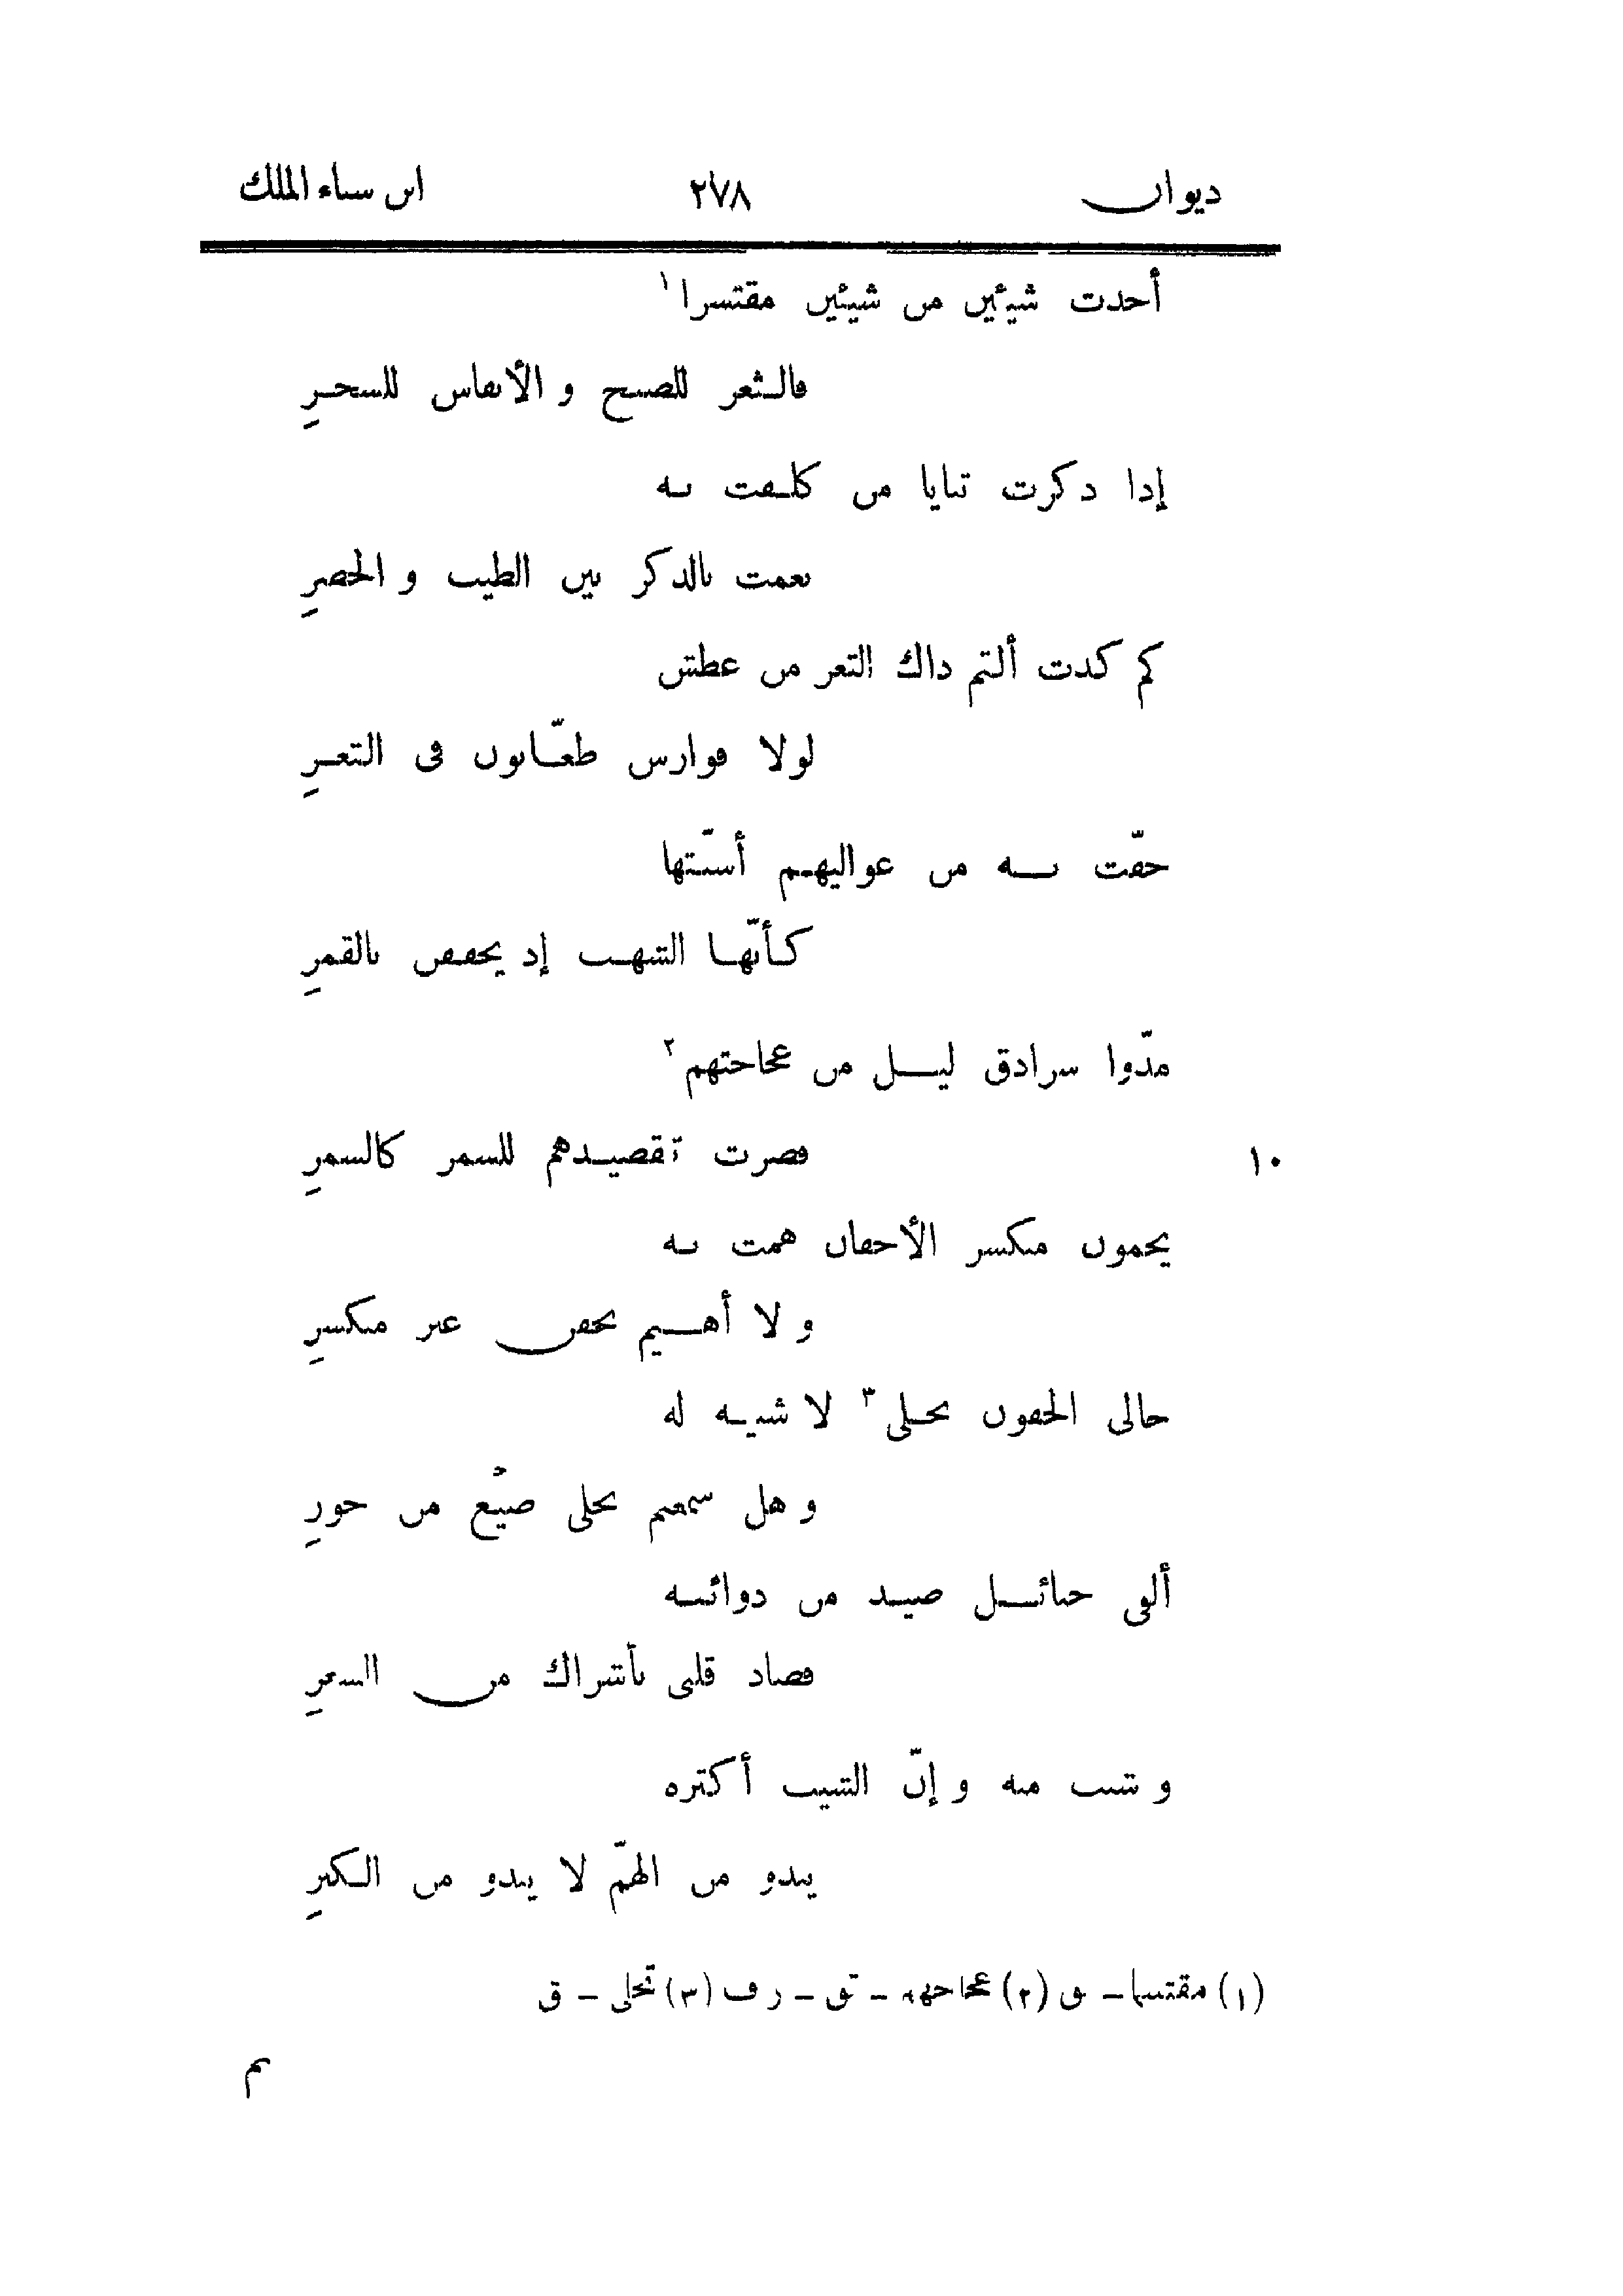 ديوان ٢٧٨ ابن سناء الملك
أخذت شيئين من شيئين مقتسرا ١
فالثغر للصبح و الأنفاس للسحرِ
إذا ذكرت ثنايا من كلفت به
نعمت بالذكر بين الطيب و الخصرِ
كم كدت ألثم ذاك الثغر من عطش
لولا فوارس طعّانون فى الثغرِ
حفّت به من عواليهم أسنّتها
كأنّها الشهب إذ يحففن بالقمرِ
مدّوا سرادق ليل من عجاجتهم ٢
فصرت تقصيدهم للسمر كالسمرِ ١٠
يحمون منكسر الأجفان همت به
و لا أهيم بجفن غير منكسرِ
حالى الجفون بحلى ٣ لا شبيه له
و هل سمعتم بحلى صيغ من حورِ
ألقى حبائل صيد من ذوائبه
فصاد قلبى بأشراك من الشعرِ
و شبت منه و إنّ الشيب أكثره
يبدو من الهمّ لا يبدو من الكبرِ
(١) مقتسما - ق (٢) عجاجهم - تق - ر ف (٣) تحلى - ق